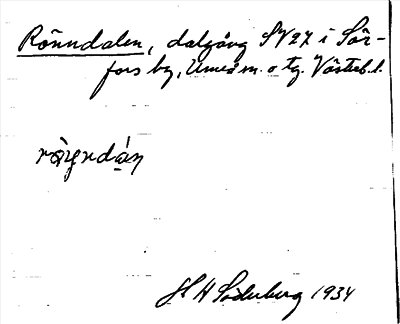 Rönndalen, dalgång SV 27 i Sör-
fors by, Umeå m. o tg. Västerb. l.
H H Söderberg 1934